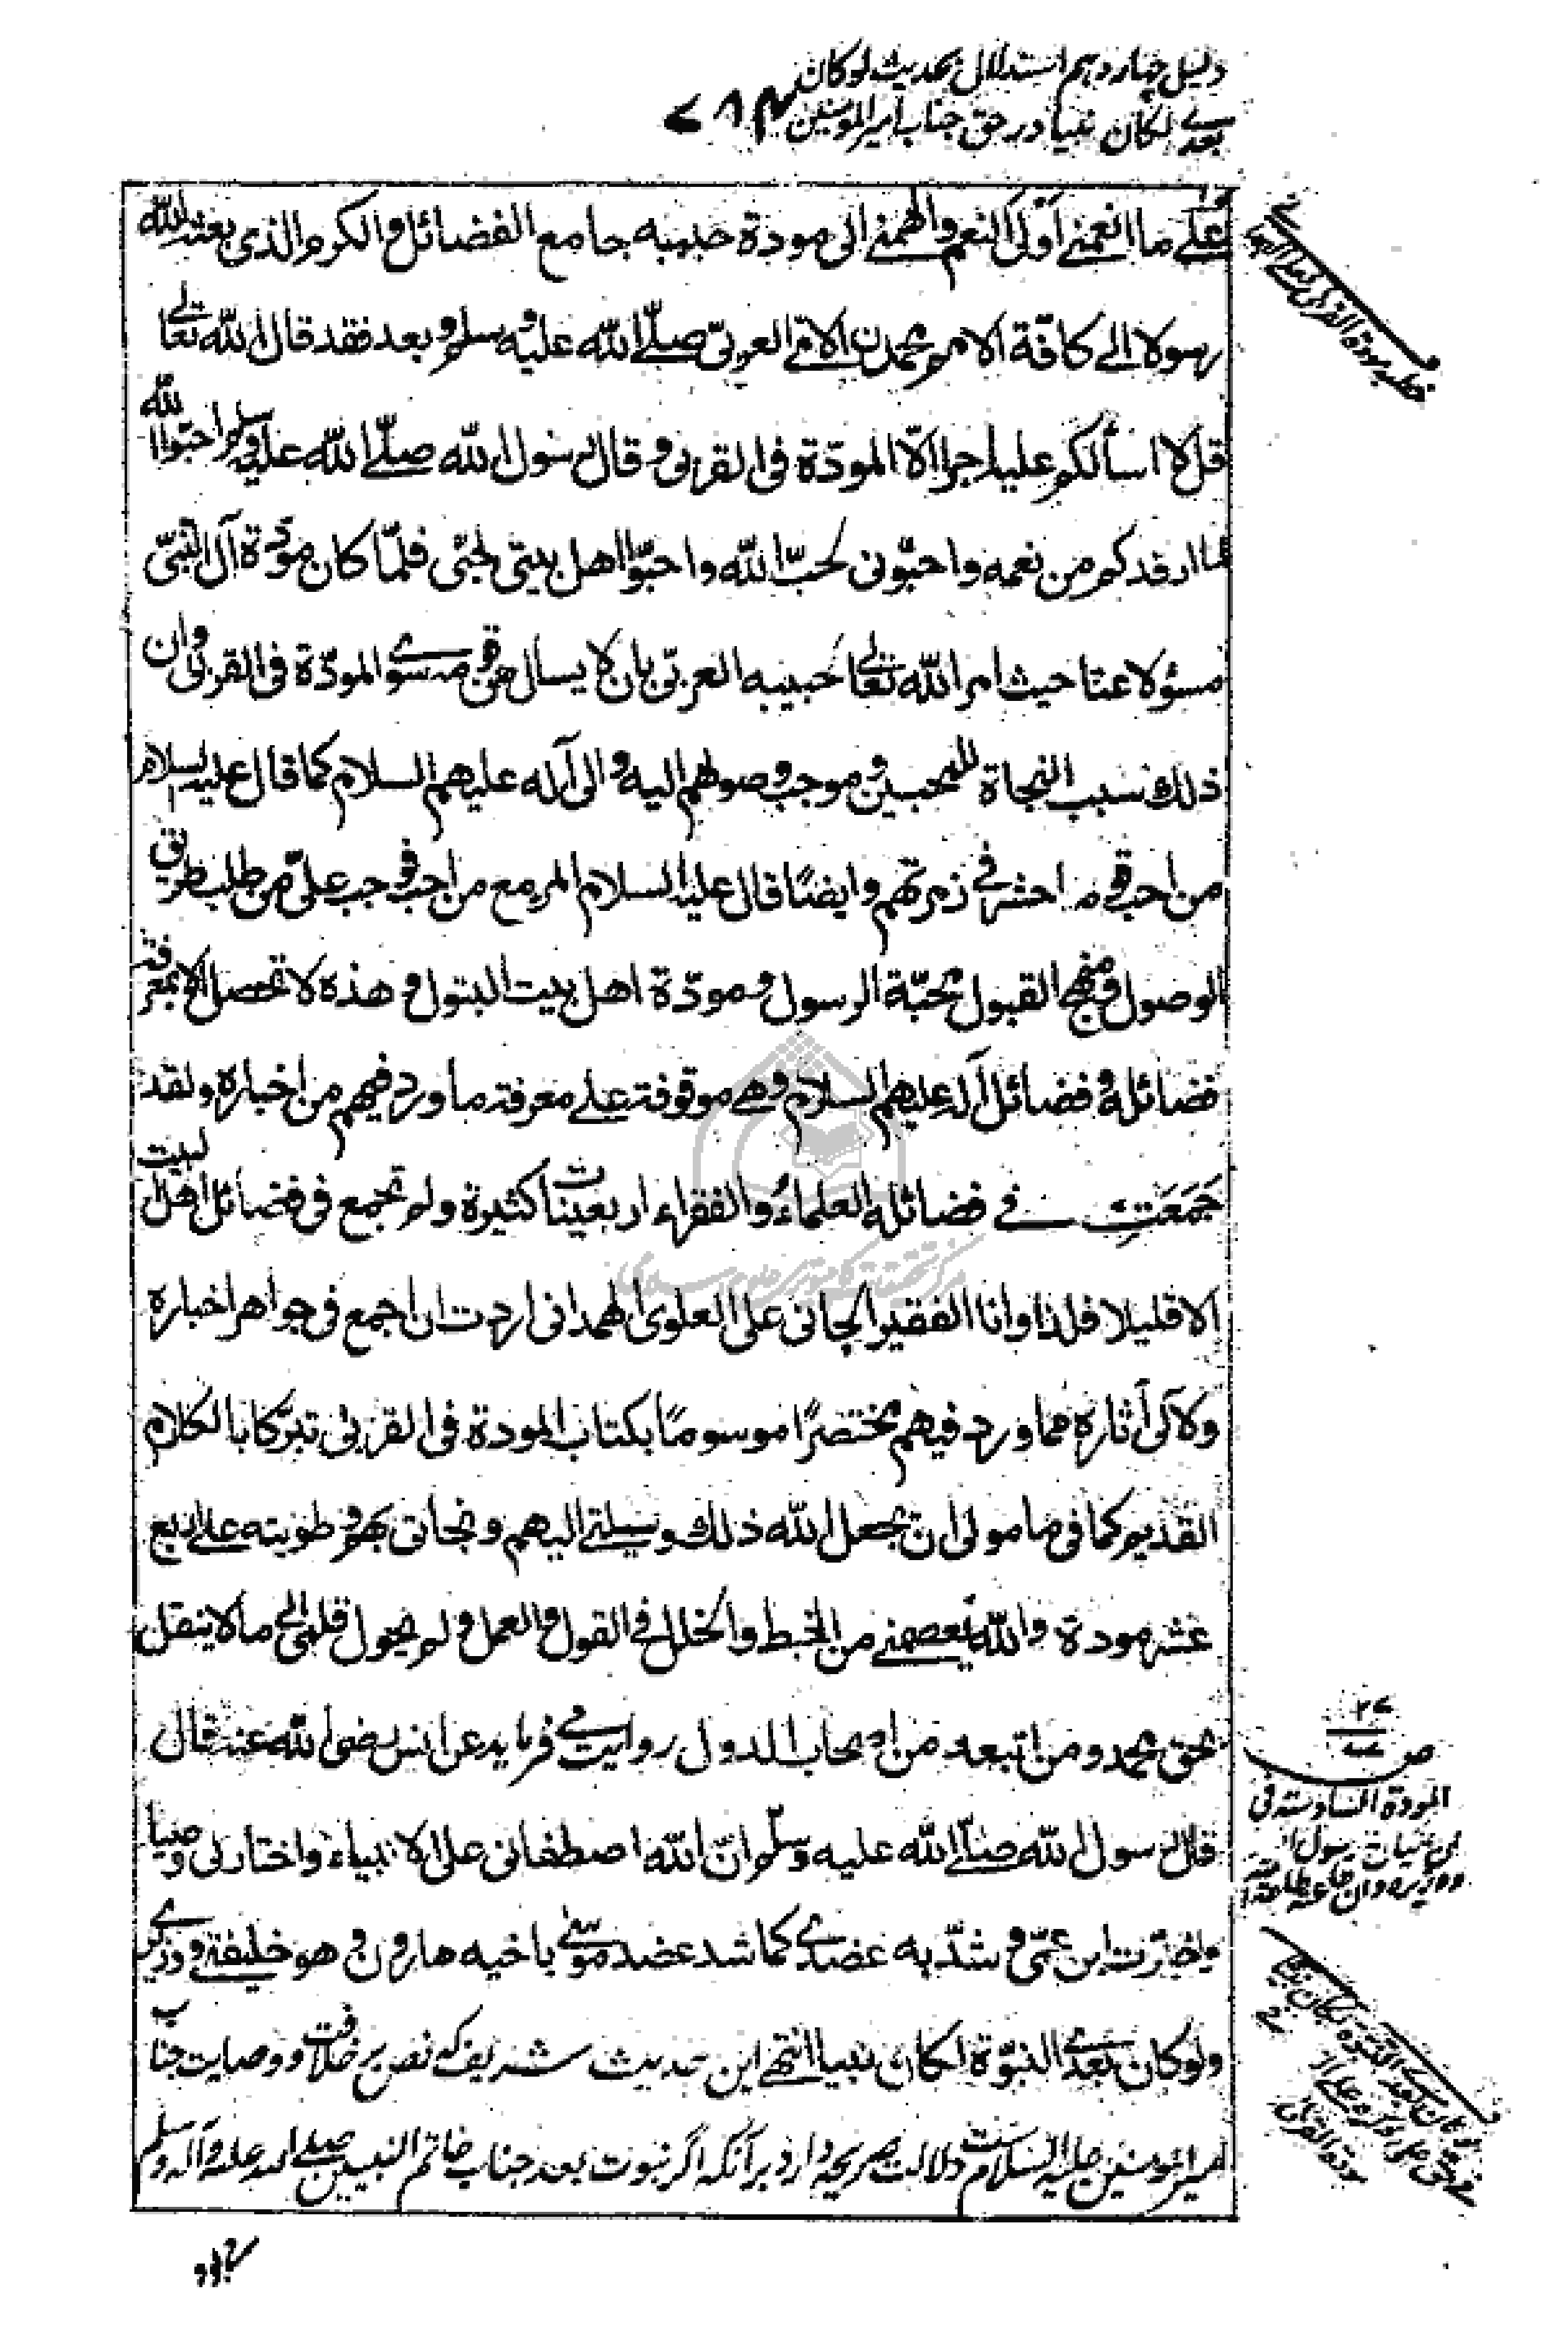 دلیل چهاردهم استدلال بحدیث لو کان
بعدے لکان نبیا در حق جناب امیرالمومنین
علے ما انعمنے اولی النعم والهمنے الی مودة حبیبه جامع الفضائل والکرم الذی بعثه الله
رسولا الے کافّة الامم محمد ن الامّے العربیّ صلّے الله علیه وسلم وبعد فقد قال الله تعالے
قل لا اسألکم علیه اجرا الّا المودّة فی القربی وقال رسول الله صلّے الله علیه وسلم احبّوا الله
لما ارفدکم من نعمه واحبّونی لحبّ الله واحبّوا اهل بیتی لحبّی فلمّا کان مودّة آل النبیّ
مسؤلا عنا حیث امر الله تعالے لحبیبه العربیّ بان لا یسأل من قومه سوے المودّة فی القربی وان
ذلک سبب النجاة للمحبین وموجب وصولهم الیه والی آله علیهم السلام کما قال علیه السلام
من احب قوما حشر فے زمرتهم وایضًا قال علیه السلام المرء مع من احب فوجب علی من طلب طریق
الوصول ومنهج القبول محبّة الرسول ومودّة اهل بیت البتول وهذه لا تحصل الا بمعرفة
فضائله وفضائل آله علیهم السلام وهے موقوفة علے معرفة ما ورد فیهم من اخباره ولقد
جَمَعَت فے فضائله العلماءُ والفقراء اربعینات کثیرة ولم تجمع فی فضائل اهل البیت
الا قلیلا فلذا وانا الفقیر الجانی علی العلوی الهمدانی اردت ان اجمع فی جواهر اخباره
ولآلی آثاره مما ورد فیهم مختصرًا موسومًا بکتاب المودة فی القربی تبرّکا بالکلام
القدیم کما فی مامولی ان یجعل الله ذلک وسیلتے الیهم ونجاتی بهم وطویته علے اربع
عشر مودة والله یعصمنے من الخبط والخلل فے القول والعمل ولم یحول قلمی الی ما لا ینقل
بحق محمد ومن اتبعه من اصحاب الدول روایت مے فرماید عن انس رضی الله عنه قال
قال رسول الله صلّے الله علیه وسلّم انّ الله اصطفانی علی الانبیاء واختار لی وصیا
واخترت ابن عمّی وشدّ به عضدے کما شد عضد موسے باخیه هارون وهو خلیفتے ووزیرے
ولو کان بعدے النبوّة لکان نبیا انتهے این حدیث شریف که نص بر خلافت ووصایت جناب
امیرالمومنین علیه السلام ست دلالت صریحه دارد بر آنکه اگر نبوت بعد جناب خاتم النبیین صلے الله علیه وآله وسلم
المودة السادسة فی